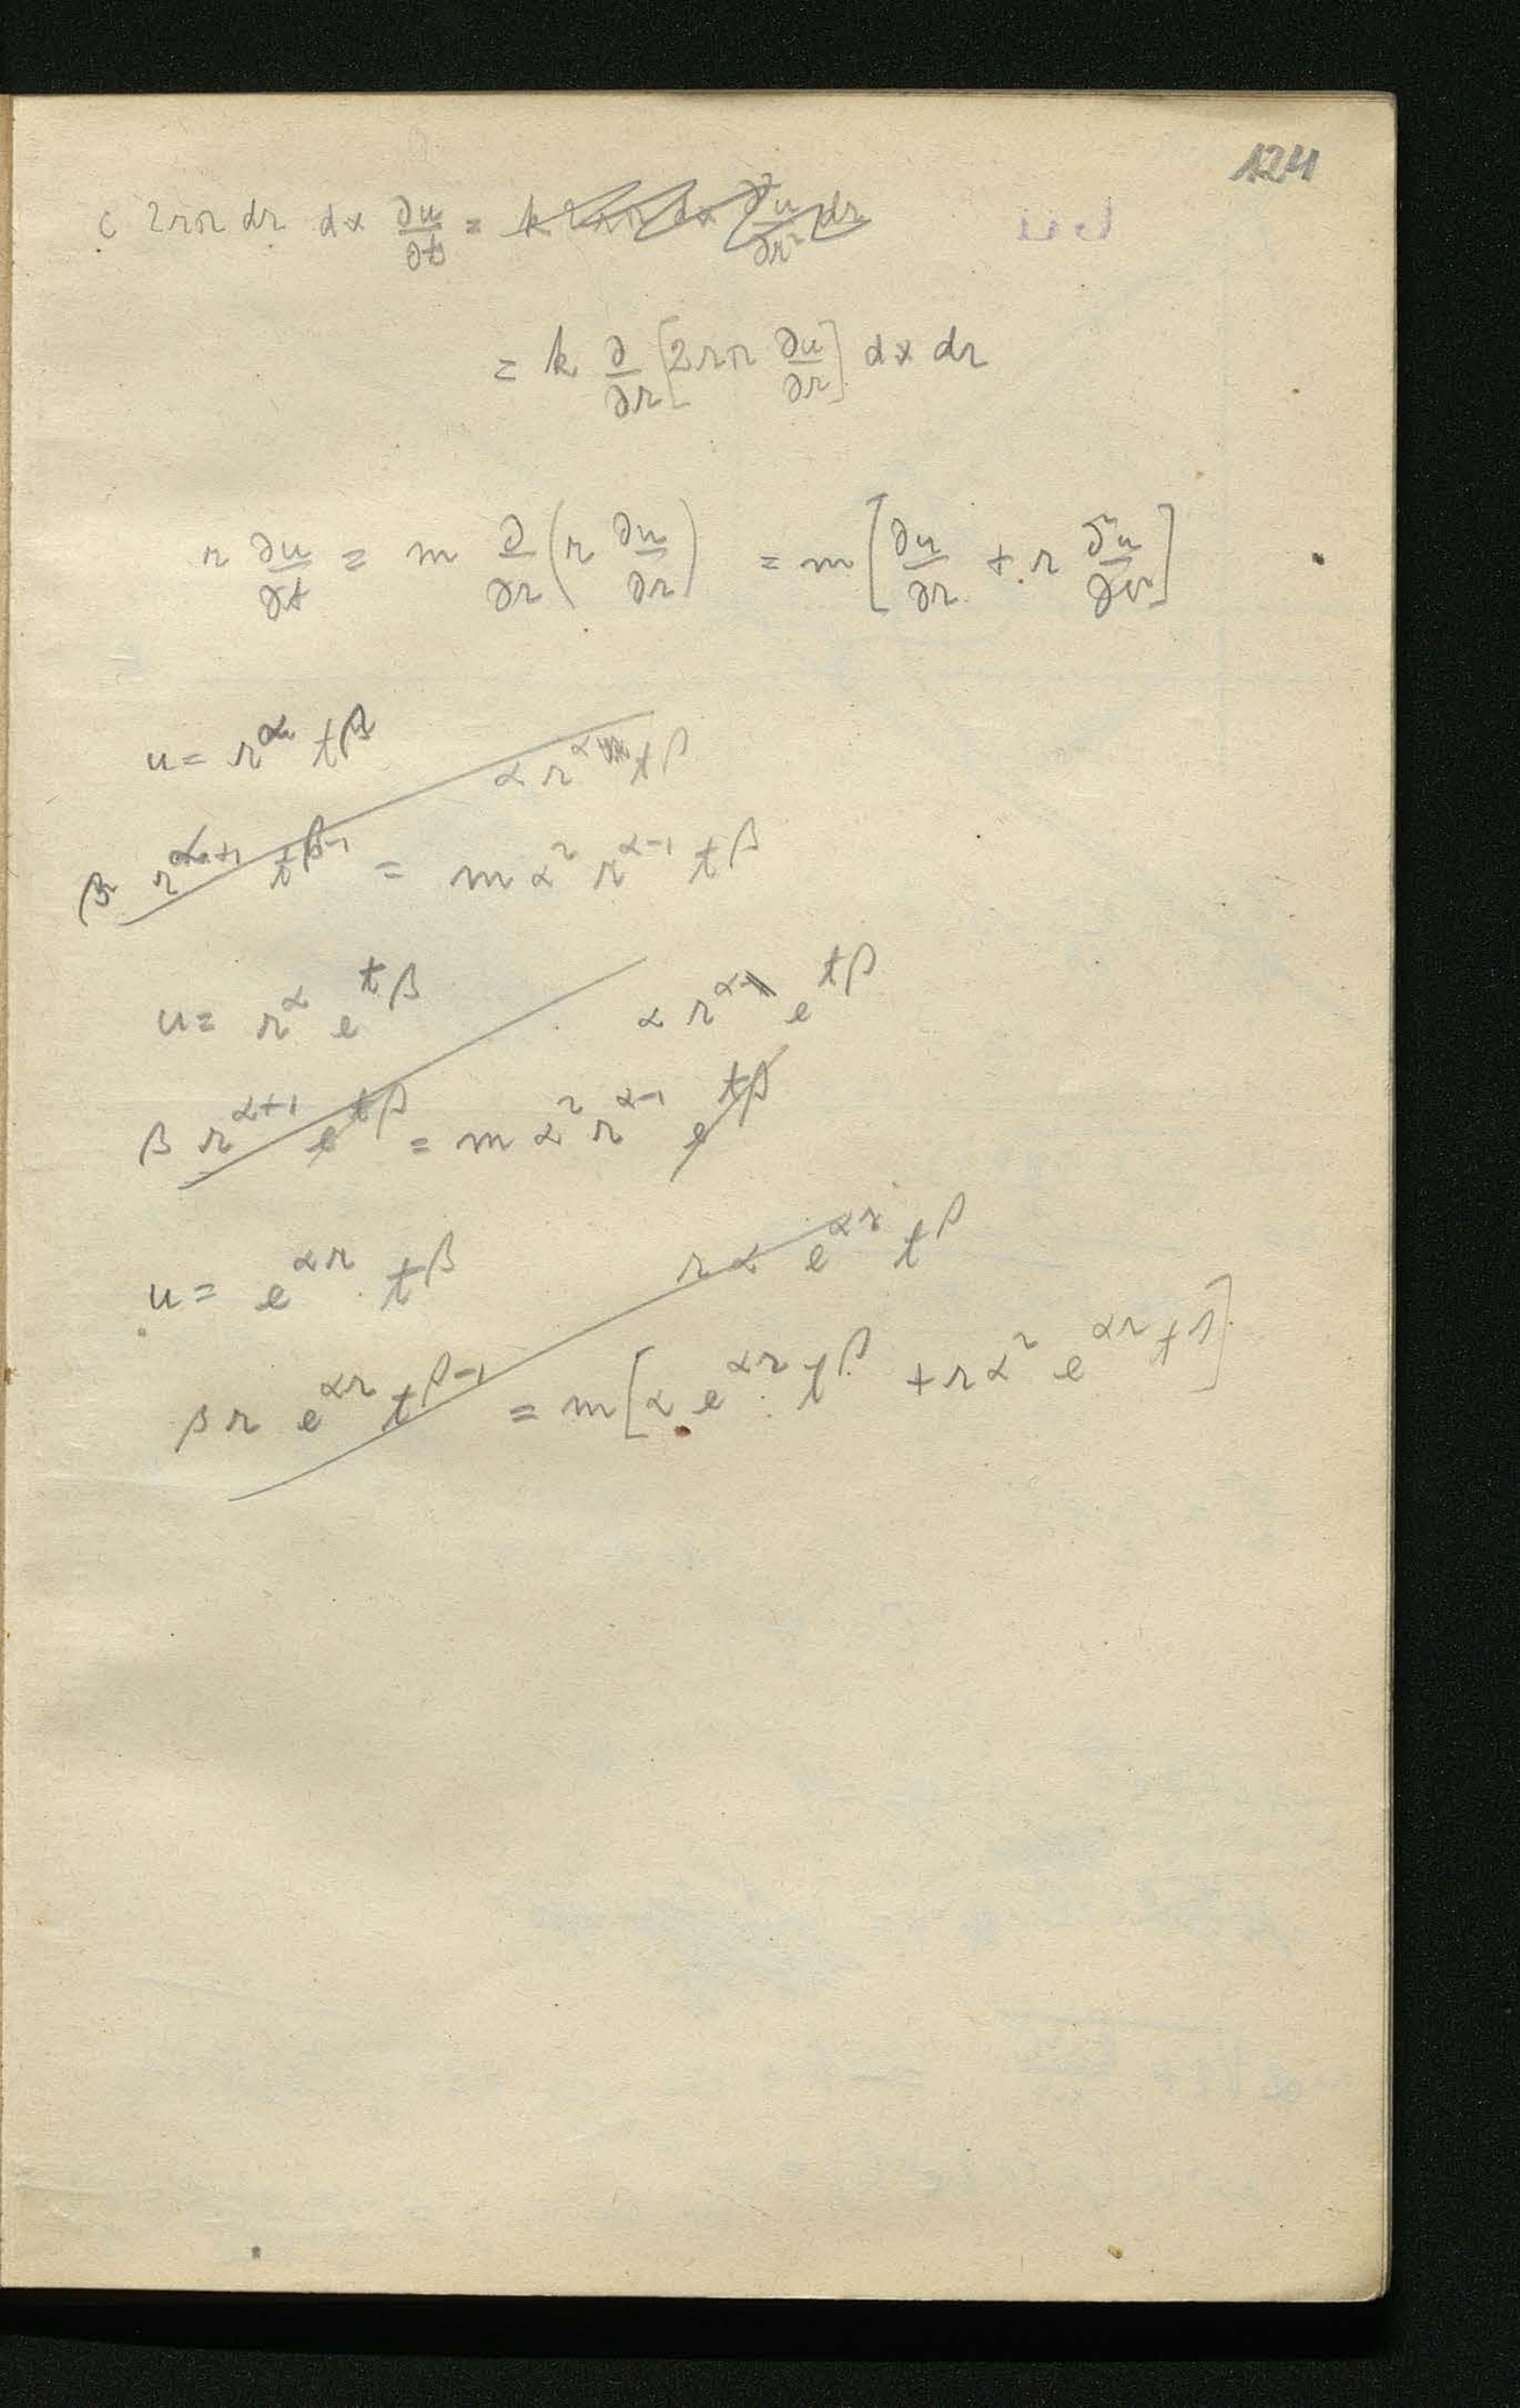 124
c 2rπ dr dx ∂u/∂t = k 2rπ dx ∂²u/∂r² dr
= k ∂/∂r [2rπ ∂u/∂r] dx dr
r ∂u/∂t = m ∂/∂r (r ∂u/∂r) = m [∂u/∂r + r ∂²u/∂r²]
u = r^α t^β
α r^α t^β
β r^(α+1) t^(β-1) = m α² r^(α-1) t^β
u = r^α e^(tβ) α r^α e^(tβ)
β r^(α+1) e^(tβ) = m α² r^(α-1) e^(tβ)
u = e^(αr) t^β r α e^(αr) t^β
β r e^(αr) t^(β-1) = m [α e^(αr) t^β + r α² e^(αr) t^β]